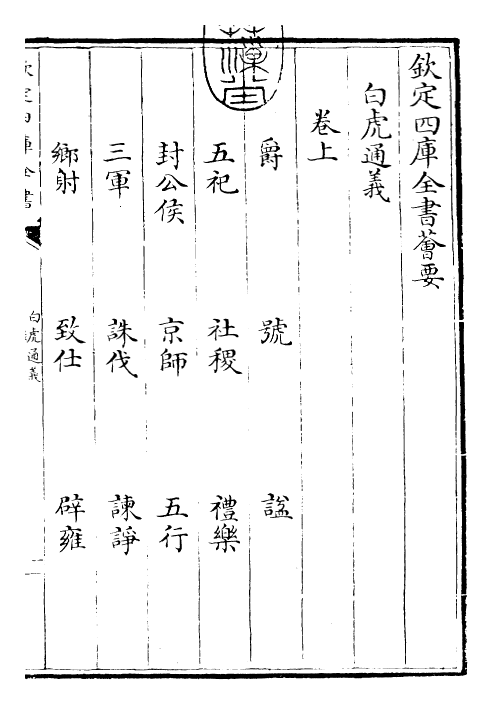 欽定四庫全書薈要
白虎通義
卷上
爵 號 謚
五祀 社稷 禮樂
封公侯 京師 五行
三軍 誅伐 諫諍
鄉射 致仕 辟雍
欽定四庫全書
白虎通義